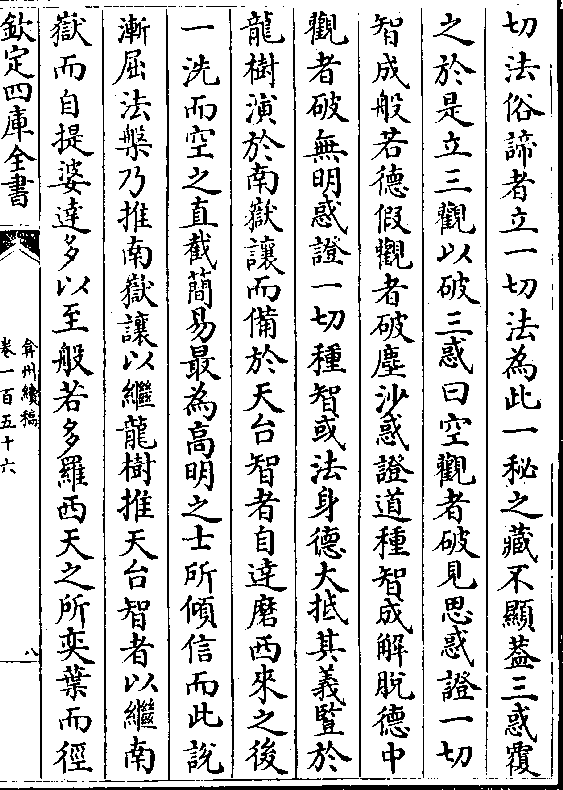 切法俗諦者立一切法為此一秘之藏不顯葢三惑覆
之於是立三觀以破三惑曰空觀者破見思惑證一切
智成般若德假觀者破塵沙惑證道種智成解脫德中
觀者破無明惑證一切種智或法身德大抵其義暨於
龍樹演於南嶽讓而備於天台智者自達磨西來之後
一洗而空之直截簡易最為高明之士所傾信而此說
漸屈法槃乃推南嶽讓以繼龍樹推天台智者以繼南
嶽而自提婆達多以至般若多羅西天之所奕葉而徑
欽定四庫全書
弇州續稿
卷一百五十六
八